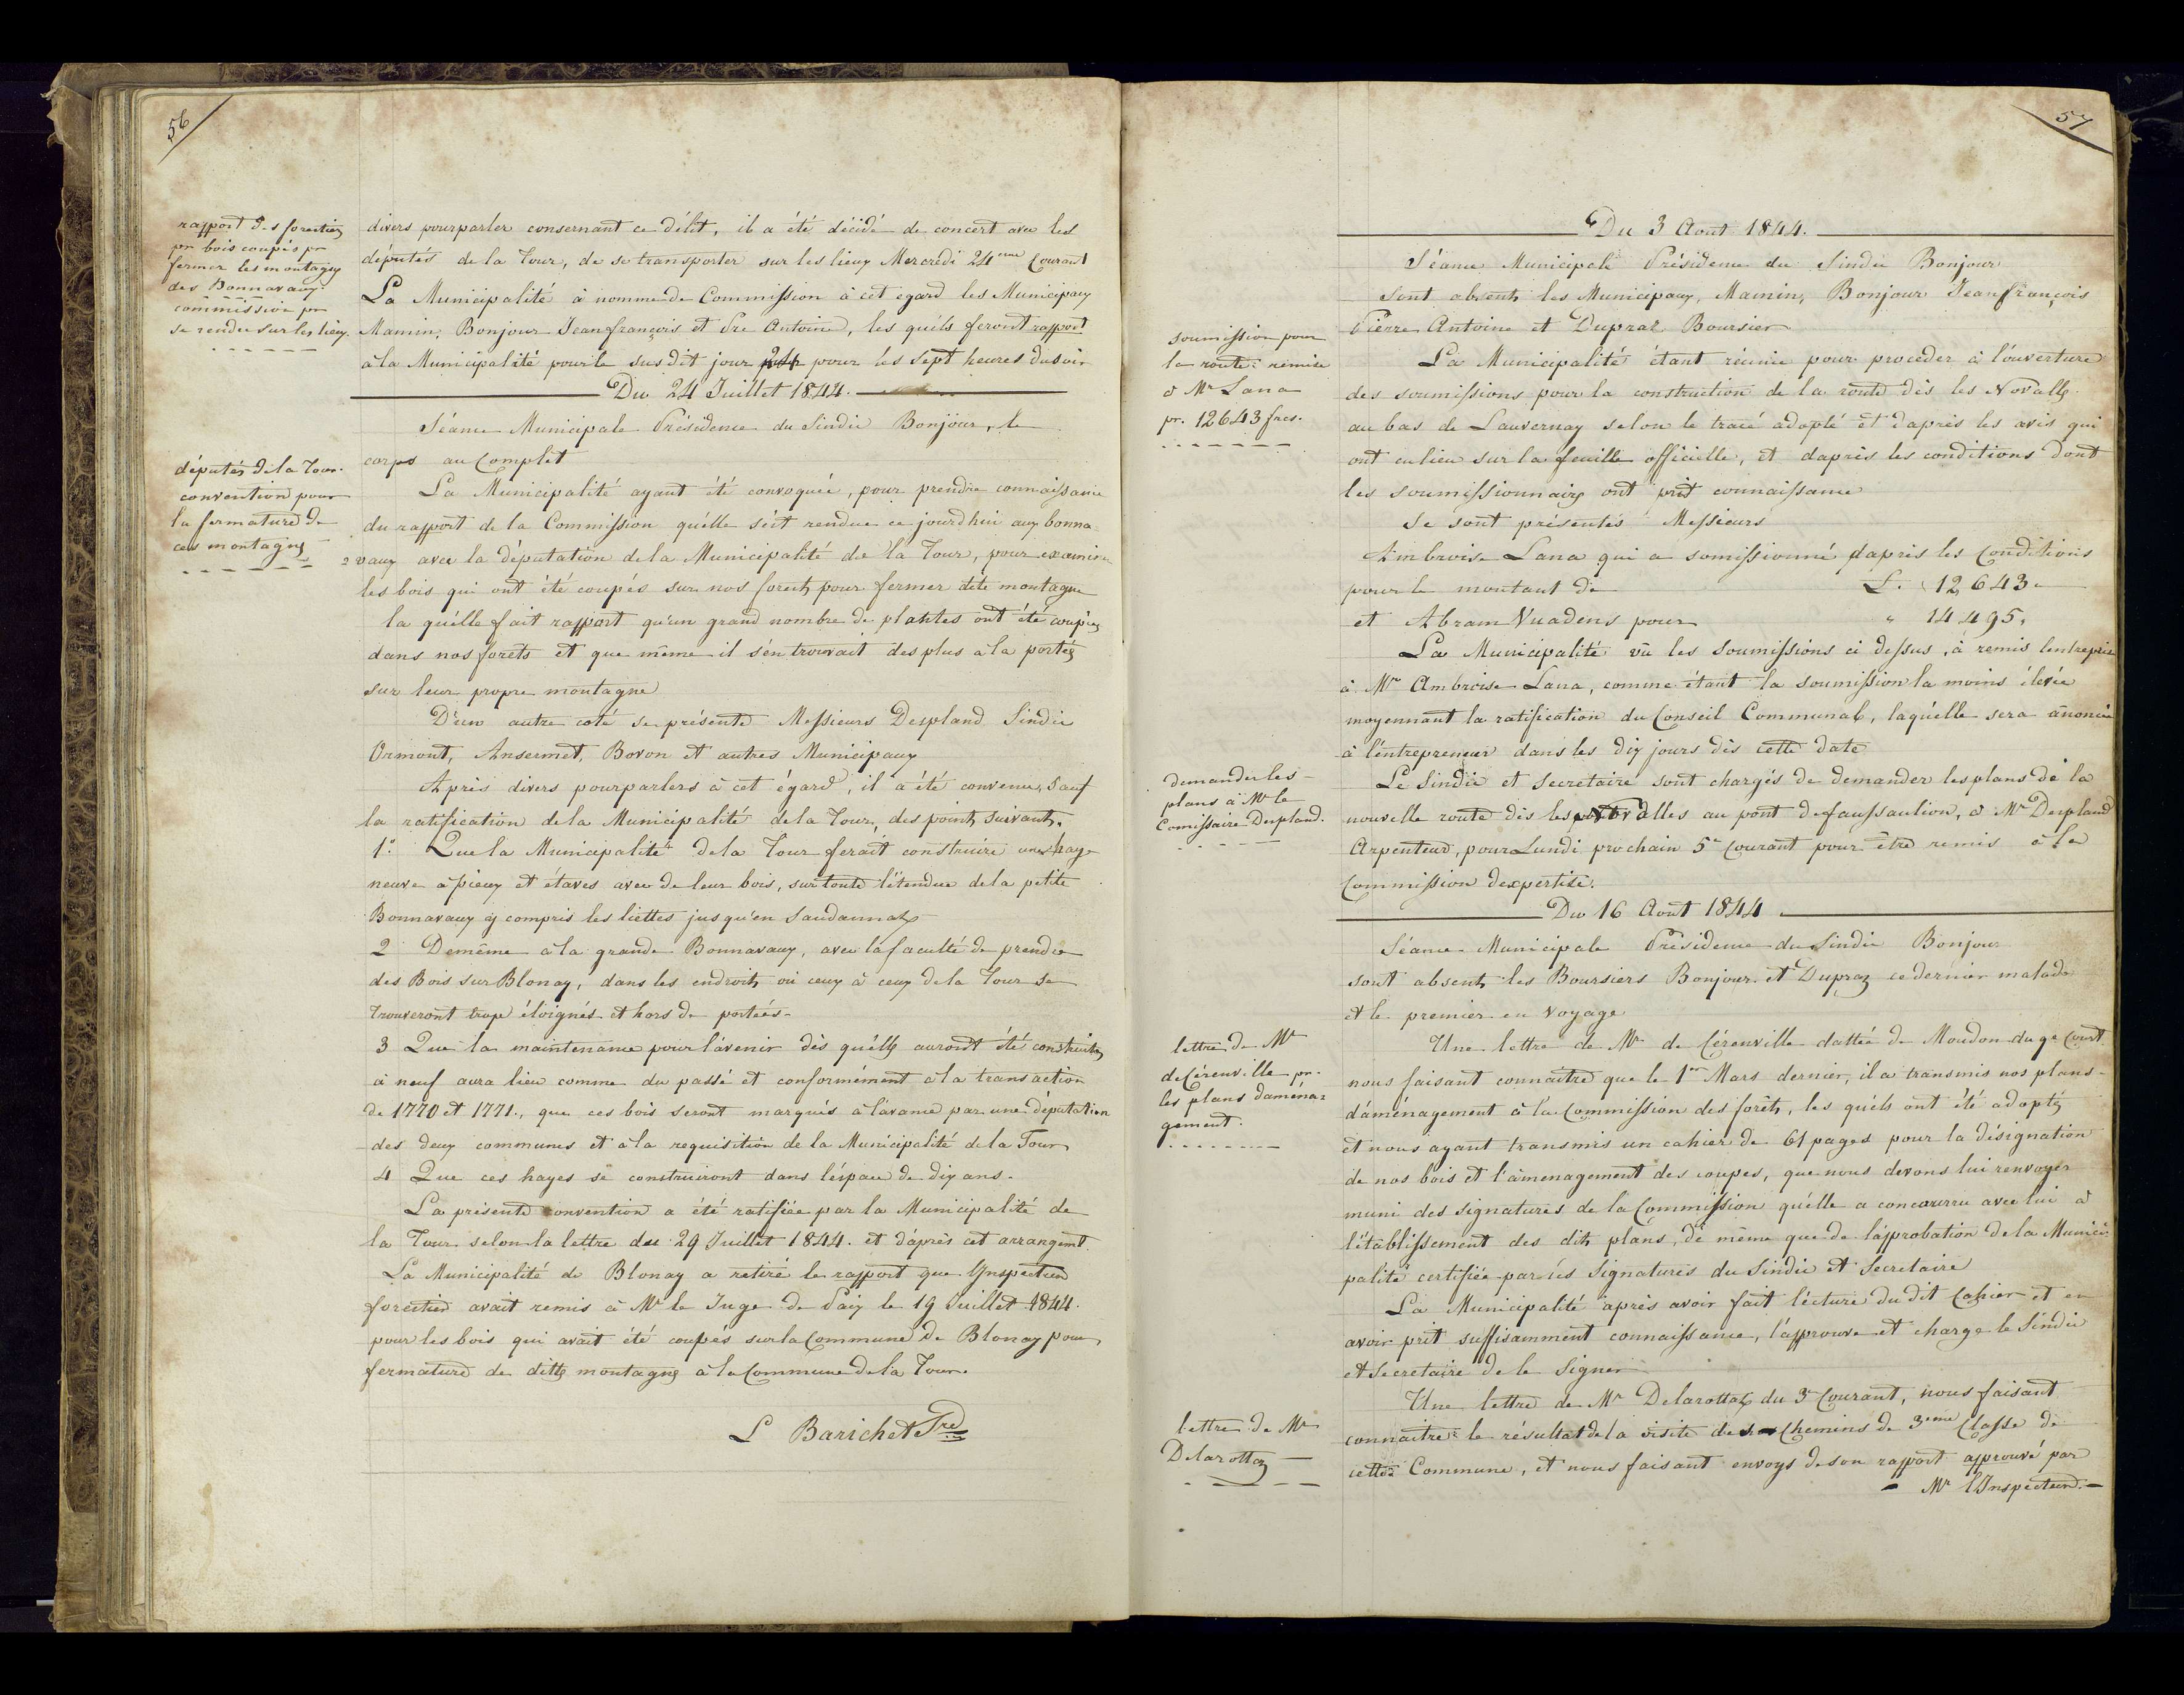 56
rapport des forestiers
pr bois coupés pr
fermer les montagnes
des Bonnavaux.
commission pr
se rendre sur les lieux.
divers pourparler consernant ce délit, il a été décidé de concert avec les
députés de la Tour, de se transporter sur les lieux Mercredi 24eme Courant
La Municipalité à nommé de Commission à cet égard les Municipaux
Mamin, Bonjour Jeanfrançois et Pre Antoine, les quéls feront rapport
à la Municipalité pour le susdit jour 24 pour les sept heures du soir
Du 24 Juillet 1844.
Séance Municipale Présidence du Sindic Bonjour, le
corps au Complèt
députés de la Tour.
convention pour
la fermature de
ces montagnes
La Municipalité ayant été convoquée, pour prendre connaissance
du rapport de la Commission qu'élle s'éit rendue ce jourdhui aux bonna
vaux avec la députation de la Municipalité de la Tour, pour examiner
les bois qui ont été coupés sur nos forets pour fermer dite montagne
la quélle fait rapport qu'un grand nombre de plantes ont été coupées
dans nos forêts et que même il s'én trouvait des plus à la portés
sur leur propre montagne
D'un autre coté se présente Messieurs Despland Sindic
Ormont, Ansermet, Bovon et autres Municipaux
Après divers pourparlers à cet égard, il a été convenu, Sauf
la ratification de la Municipalité de la Tour, des points suivants.
1° Que la Municipalité de la Tour ferait construire une haye
neuve à pieux et étaves avec de leur bois, sur toute l'étendue de la petite
Bonnavaux y compris les liettes jusqu'en Saudannaz
2 De même à la grande Bonnavaux, avec la faculté de prendre
des Bois sur Blonay, dans les endroits où ceux à ceux de la Tour se
trouveront trope éloignés et hors de portées.
3 Que la maintenance pour l'avenir dès qu'élles auront été construites
à neuf aura lieu comme du passé et conformément à la transaction
de 1770 et 1771., que ces bois seront marqués à l'avance par une députation
des deux communes et à la requisition de la Municipalité de la Tour
4 Que ces hayes se construiront dans l'éspace de dix ans.
La présente convention a été ratifiée par la Municipalité de
la Tour selon la lettre du 29 Juillet 1844. et d'après cet arrangemt.
La Municipalité de Blonay a retiré le rapport que l'Inspecteur
forestier avait remis à Mr le Juge de Paix le 19 Juillet 1844.
pour les bois qui avait été coupés sur la Commune de Blonay pour
fermature de dittes montagnes à la Commune de la Tour.
L Barichet Sre
57
Du 3 Aout 1844.
Séance Municipale Présidence du Sindic Bonjour
sont absents les Municipaux, Mamin, Bonjour Jeanfrançois
Pierre Antoine et Dupraz Boursier
soumission pour
la route remise
à Mr Lana
pr. 12643 frcs.
La Municipalité étant réunie pour proceder à l'ouverture
des soumissions pour la construction de la route dès les Novalles
au bas de Lauvernay selon le tracé adopté et d'après les avis qui
ont eu lieu sur la feuille officielle, et d'après les conditions dont
les soumissionnaires ont prit connaissance
Se sont présentés Messieurs
Ambroise Lana qui a somissionné d'après les Conditions
pour le montant de L. 12,643.
et Abram Vuadens pour " 14495.
La Municipalité vû les Soumissions ci dessus, à remis lentreprise
à Mr Ambroise Lana, comme étant la soumission la moins élevée
moyennant la ratification du Conseil Communal, laquélle sera anoncée
à l'éntrepreneur dans les dix jours dès cette date
demander les
plans à Mr le
Comissaire Despland.
Le Sindic et Secretaire sont chargés de demander les plans de la
nouvelle route dès les novalles au pont de faussaution, à Mr Despland
Arpenteur, pour Lundi prochain 5e Courant pour être remis à la
Commission dexpertise.
Du 16 Aout 1844
Séance Municipale Présidence du Sindic Bonjour
sont absents les Boursiers Bonjour et Dupraz ce dernier malade
et le premier en voyage
lettre de Mr
de Cérenville pr.
les plans daména=
gement.
Une lettre de Mr de Cérenville dattée de Moudon du 9e Court.
nous faisant connaitre que le 1er Mars dernier, il a transmis nos plans
d'aménagement à la Commission des forêts, les quéls ont été adoptés
et nous ayant transmis un cahier de 61 pages pour la désignation
de nos bois et l'amenagement des coupes, que nous devons lui renvoyer
muni des signatures de la Commission quélle a concourru avec lui à
l'établissement des dits plans, de même que de l'approbation de la Munici
palité certifiée par les Signatures du Sindic et Secretaire
La Municipalité après avoir fait lécture du dit Cahier et en
avoir prit suffisamment connaissance, l'approuve et charge le Sindic
et Secretaire de le Signer
lettre de Mr
Delarottaz
Une lettre de Mr Delarottaz du 3e Courant, nous faisant
connaitre le résultat de la visite des Chemins de 3eme Classe de
cette Commune, et nous faisant envoys de son rapport approuvé par
Mr l'Inspecteur.